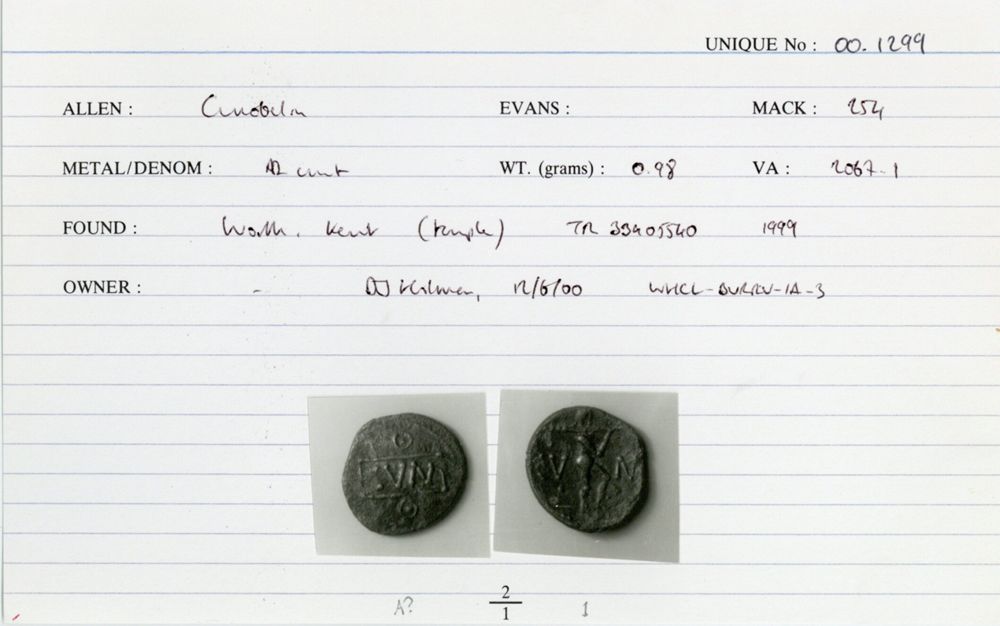 UNIQUE No : 00.1299
ALLEN : Cunobelin EVANS : MACK : 254
METAL/DENOM : AR unit WT. (grams) : 0.98 VA : 2067-1
FOUND : Worth, Kent (temple) TR 33405540 1999
OWNER : - DJ Holman, 12/6/00
CVN
V N
A? 2 1
1